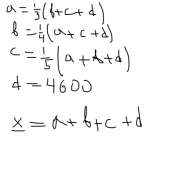 a = 1/3 (b+c+d)
b = 1/4 (a+c+d)
c = 1/5 (a+b+d)
d = 4600
x = a+b+c+d